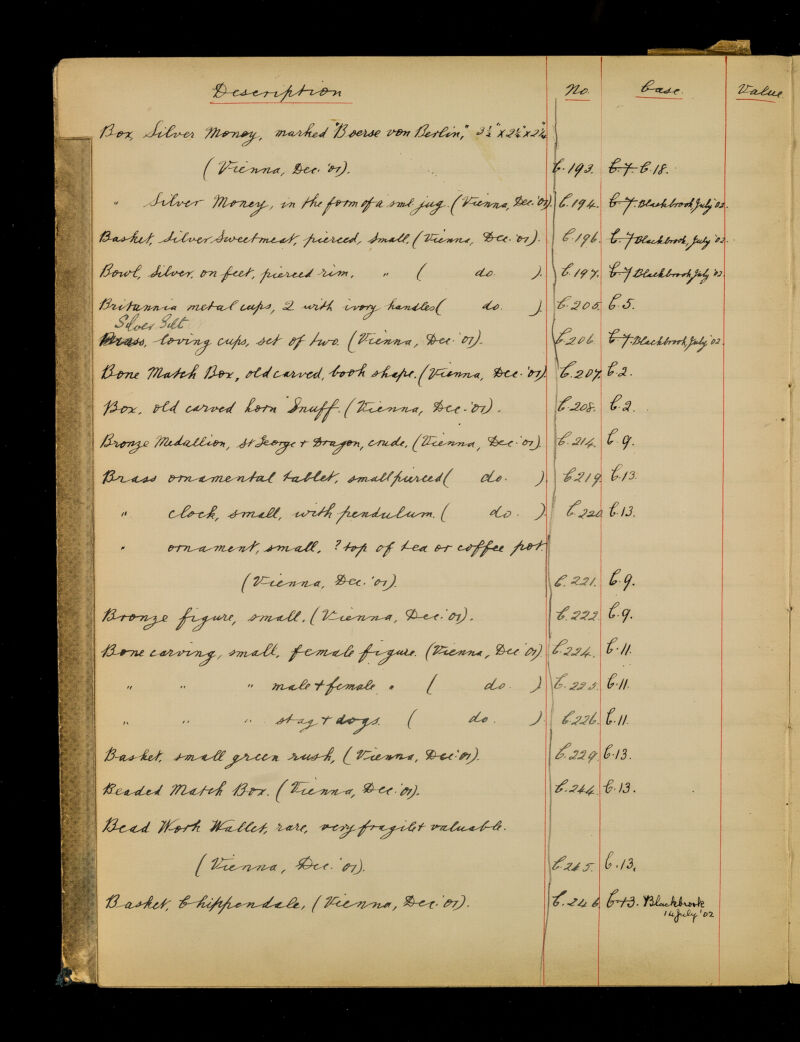 Description No. Case. Value
Box, Silver Money, marked "Boerse von Berlin," 3½" x 2¼" x 2¼
(Vienna, Dec. '01). C.193. C.7. C.18.
" Silver Money, in the form of a sml jug (Vienna, Dec. '01) C.194. C.7. Blackbrook July '02.
Basket, Silver Sweetmeat, pierced, small, (Vienna, Dec. '01). C.196. C.7 Blackbrook, July '02.
Bowl, Silver, on feet, pierced rim, " ( do ). C.197. C.7 Blackbrook July '02.
Britannia metal cups, 2 with ivory handles ( do. ). C.205. C.5.
Silver Gilt
Brass, loving cups, set of two. (Vienna, Dec. '01). C.206 C.7. Blackbrook, July '02.
Bone Match Box, old carved, book shape. (Vienna, Dec. '01). C.207. C.2.
Box, old carved horn Snuff. (Vienna, Dec. '01). C.208. C.2.
Bronze Medallion, St George + Dragon, crude, (Vienna, Dec. '01). C.214. C.9.
Brass ornamental tablet, small pierced ( do. ) C.219. C.13.
" clock, small, with pendulum. ( do. ). C.220. C.13.
" ornament, small, ? top of tea or coffee pot.
(Vienna, Dec. '01). C.221. C.9.
Bronze figure, small. (Vienna, Dec. '01). C.222. C.9.
Bone carving, small, female figure. (Vienna, Dec '01) C.224. C.11.
" " " male + female " ( do. ) C.225. C.11.
" " " stag + dogs. ( do. ) C.226. C.11.
Basket, small green rush, (Vienna, Dec. '01). C.229. C.13.
Beaded Match Box. (Vienna, Dec. '01). C.244. C.13.
Bead Work Wallet, rare, very fragile + valuable.
(Vienna, Dec. '01). C.245. C.13.
Basket, Chippendale, (Vienna, Dec. '01). C.246 C.13. Blackbrook
14 July '02